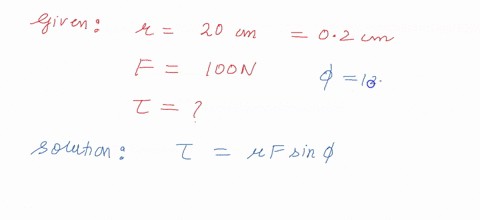 Given: r = 20 cm = 0.2 cm
F = 100N
τ = ?
Solution: τ = rF sin ϕ